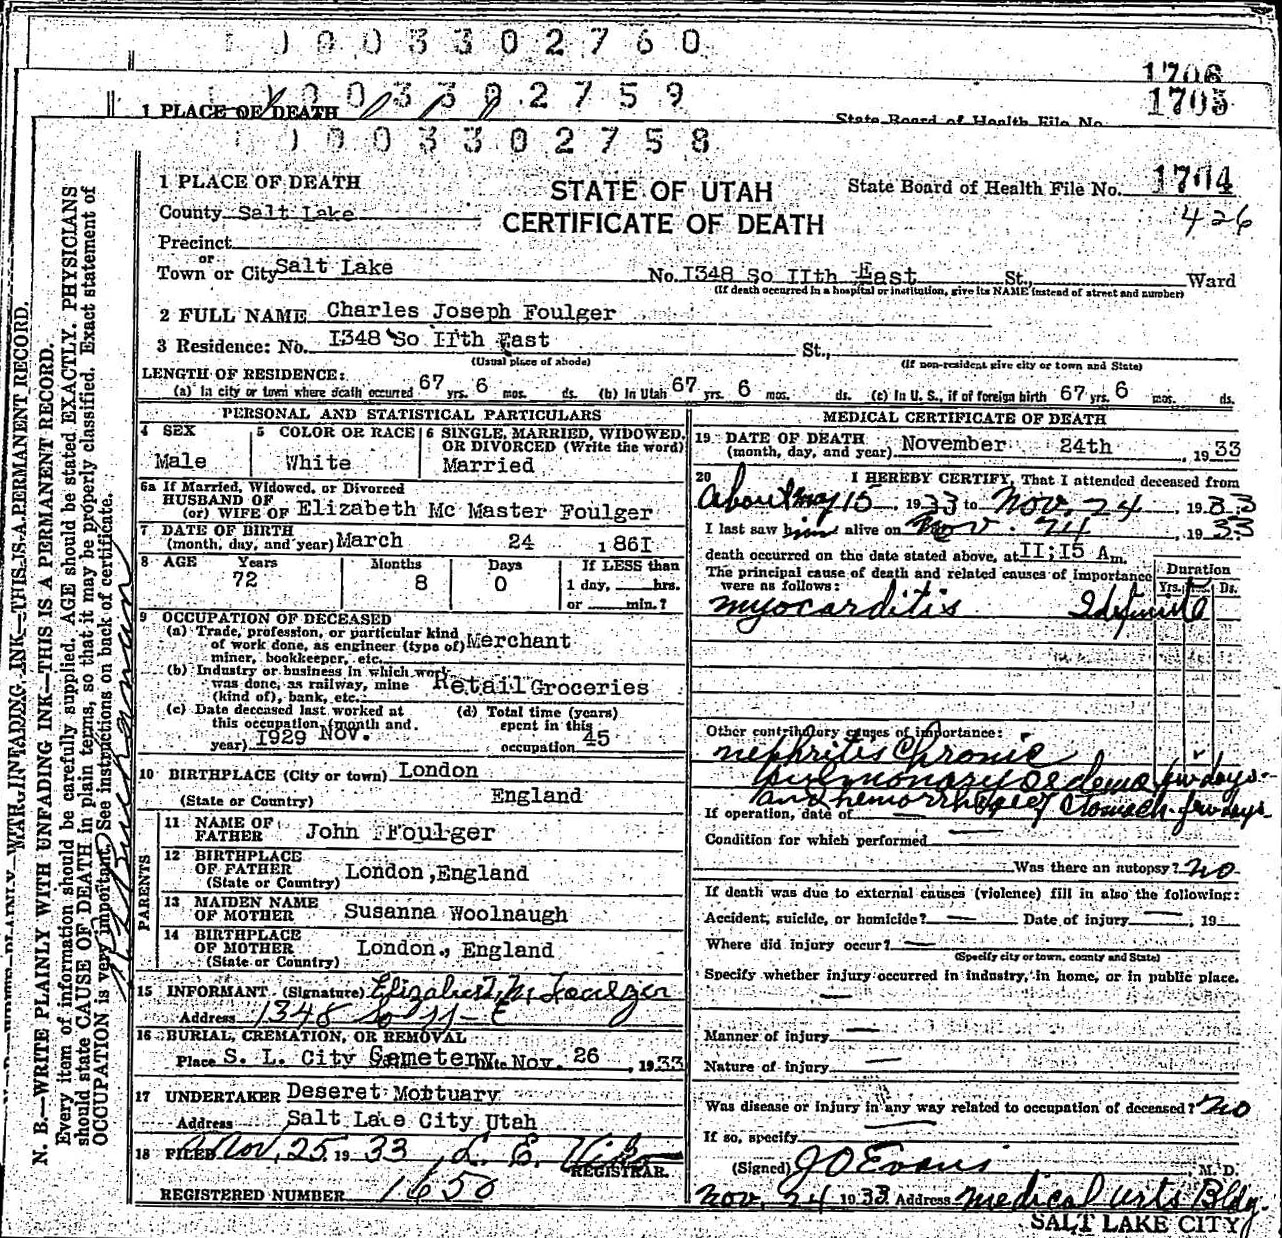 1 0 0 3 3 0 2 7 6 0
1706
1 0 0 3 3 0 2 7 5 9
1705
1 PLACE OF DEATH
State Board of Health File No.
1 0 0 3 3 0 2 7 5 8
1 PLACE OF DEATH
STATE OF UTAH
CERTIFICATE OF DEATH
State Board of Health File No. 1704
426
County Salt Lake
Precinct
or
Town or City Salt Lake No. I348 So IIth East St., Ward
(If death occurred in a hospital or institution, give its NAME instead of street and number)
2 FULL NAME Charles Joseph Foulger
3 Residence: No. I348 So IIth East St.,
(Usual place of abode) (If non-resident give city or town and State)
LENGTH OF RESIDENCE:
(a) In city or town where death occurred 67 yrs. 6 mos. ds. (b) In Utah 67 yrs. 6 mos. ds. (c) In U. S., if of foreign birth 67 yrs. 6 mos. ds.
PERSONAL AND STATISTICAL PARTICULARS
4 SEX
Male
5 COLOR OR RACE
White
6 SINGLE, MARRIED, WIDOWED, OR DIVORCED (Write the word)
Married
6a If Married, Widowed, or Divorced
HUSBAND OF
(or) WIFE OF Elizabeth Mc Master Foulger
7 DATE OF BIRTH
(month, day, and year) March 24 1861
8 AGE Years Months Days If LESS than
72 8 0 1 day, hrs.
or min.?
9 OCCUPATION OF DECEASED
(a) Trade, profession, or particular kind
of work done, as engineer (type of) Merchant
miner, bookkeeper, etc.
(b) Industry or business in which work
was done, as railway, mine Retail Groceries
(kind of), bank, etc.
(c) Date deceased last worked at
this occupation (month and
year) 1929 Nov.
(d) Total time (years)
spent in this
occupation 45
10 BIRTHPLACE (City or town) London
(State or Country) England
PARENTS
11 NAME OF
FATHER John Foulger
12 BIRTHPLACE
OF FATHER London, England
(State or Country)
13 MAIDEN NAME
OF MOTHER Susanna Woolnaugh
14 BIRTHPLACE
OF MOTHER London, England
(State or Country)
15 INFORMANT (Signature) Elizabeth M. Foulger
Address 1348 So 11 - E
16 BURIAL, CREMATION, OR REMOVAL
Place S. L. City Cemetery Date Nov. 26, 1933
17 UNDERTAKER Deseret Mortuary
Address Salt Lake City Utah
18 FILED Nov. 25 1933 L. E.
REGISTRAR.
REGISTERED NUMBER 1650
MEDICAL CERTIFICATE OF DEATH
19 DATE OF DEATH
(month, day, and year) November 24th, 1933
20 I HEREBY CERTIFY, That I attended deceased from
About May 15, 1933 to Nov. 24, 1933
I last saw him alive on Nov. 24, 1933
death occurred on the date stated above, at II;I5 A m.
The principal cause of death and related causes of importance
were as follows:
Duration
Yrs. Ds.
myocarditis
Other contributory causes of importance:
nephritis Chronic
pulmonary oedema few days -
and hemorrhage of stomach - few days
If operation, date of —
Condition for which performed —
Was there an autopsy? no
If death was due to external causes (violence) fill in also the following:
Accident, suicide, or homicide? — Date of injury —, 19
Where did injury occur? —
(Specify city or town, county and State)
Specify whether injury occurred in industry, in home, or in public place.
—
Manner of injury —
Nature of injury —
Was disease or injury in any way related to occupation of deceased? no
If so, specify
(Signed) J O Evans M. D.
Nov. 24 1933 Address Medical Arts Bldg.
SALT LAKE CITY
N. B.—WRITE PLAINLY WITH UNFADING INK—THIS IS A PERMANENT RECORD.
Every item of information should be carefully supplied. AGE should be stated EXACTLY. PHYSICIANS
should state CAUSE OF DEATH in plain terms, so that it may be properly classified. Exact statement of
OCCUPATION is very important. See instructions on back of certificate.
UNFADING INK—THIS IS A PERMANENT RECORD.